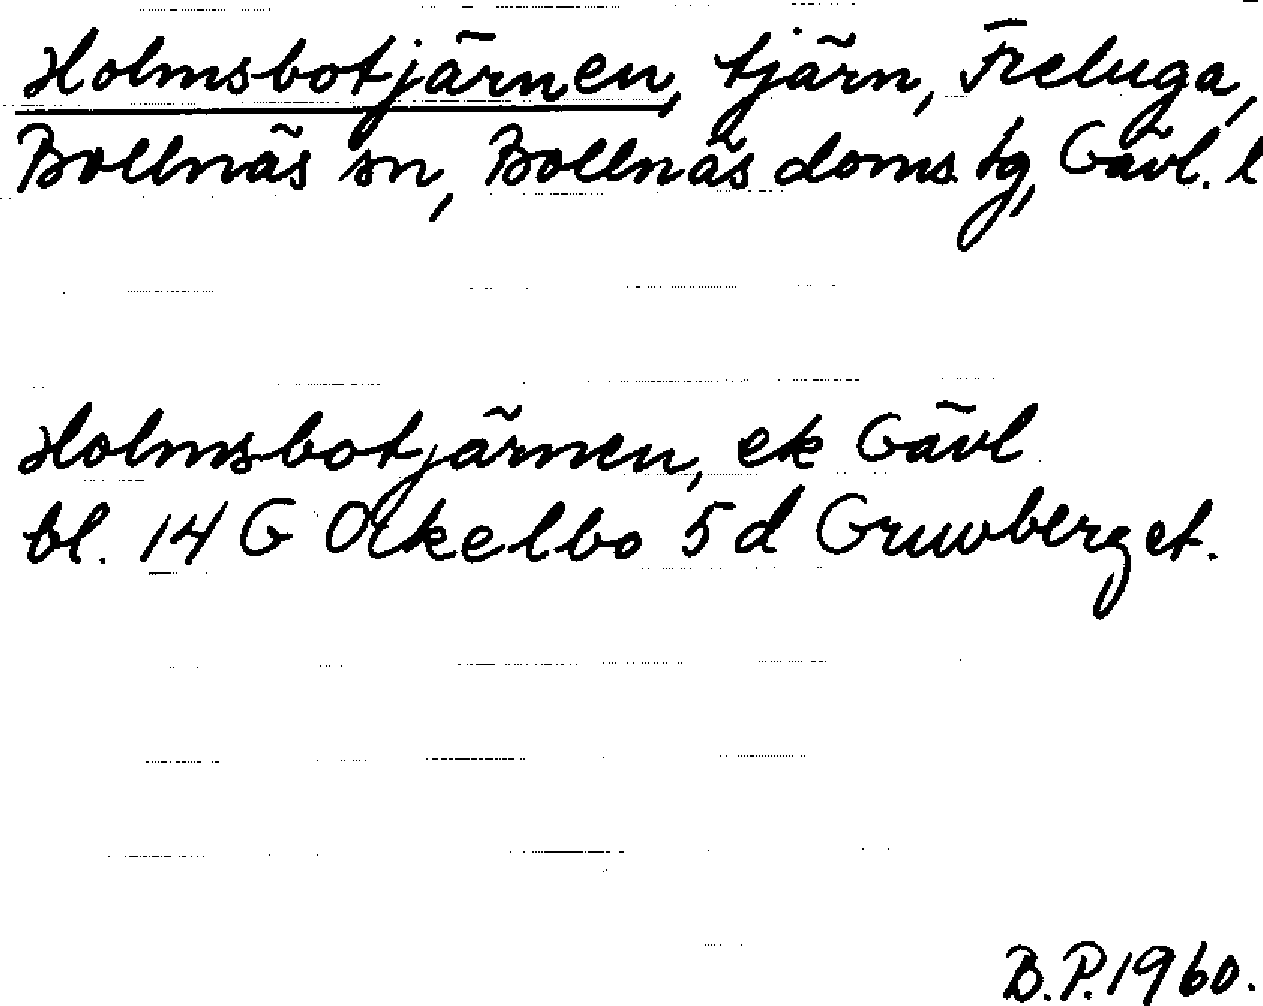 Holmsbotjärnen, tjärn, Freluga,
Bollnäs sn, Bollnäs doms. tg, Gävl. l
Holmsbotjärnen, ek Gävl
bl. 14 G Ockelbo 5d Gruvberget.
B.P. 1960.